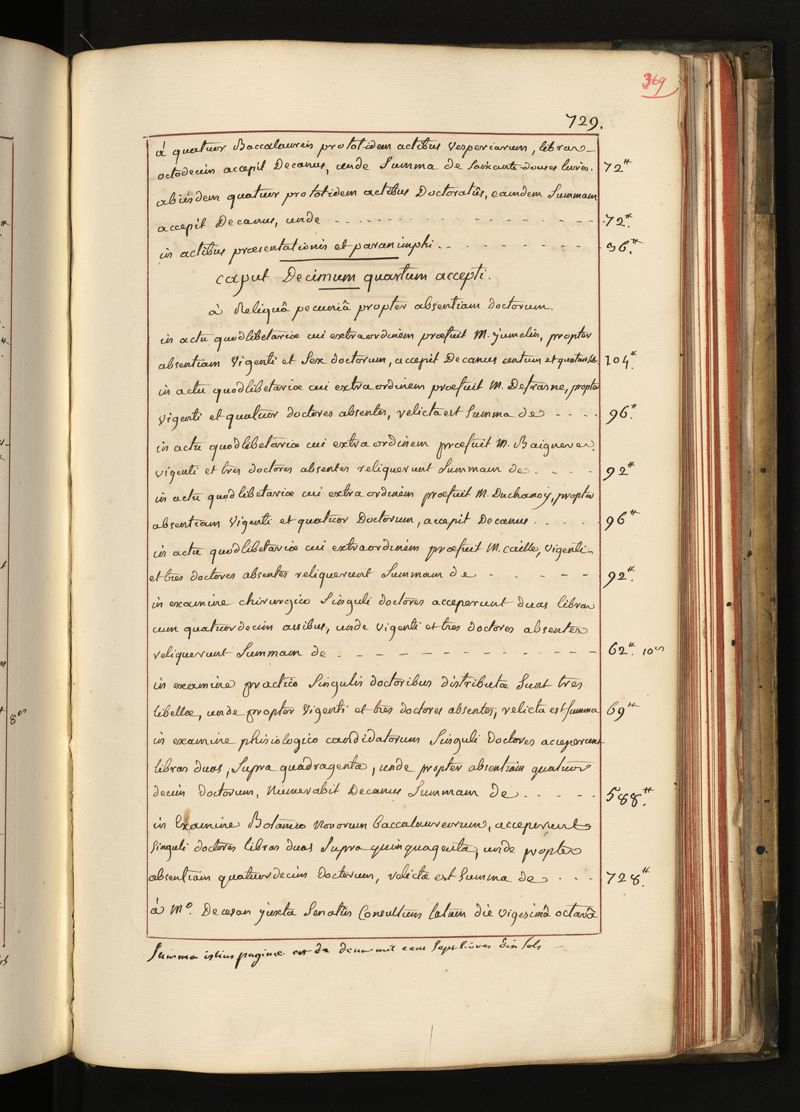 369
729.
à quatuor Baccalaureis pro totidem actibus vesperiarum, libras
octodecim accepit Decanus, unde Summa de Soixante-douses livres. 72#
ab iisdem quatuor pro totidem actibus Doctoratûs, eamdem Summam
accepit Decanus, unde - - - 72#.
in actibus præsentationis et paranimphi. - - - 36#.
caput Decimum quartum accepti.
à Reliquâ pecuniâ propter absentiam doctorum.
in actu quodlibetariæ cui extraordinem præfuit M. jumelin, propter
absentiam Vigenti et Sex doctorum, accepit Decanus centum et quatuor lib. 104#.
in actu quodlibetariæ cui extra ordinem præfuit M. Defrasne, propter
Vigenti et quatuor doctores absentes, relicta est Summa de - - - 96#.
in actu quodlibetariæ cui extra ordinem præfuit M. Baigneres.
vigenti et tres doctores absentes reliquerunt Summam de - - - 92#
in actu quodlibetariæ cui extra ordinem præfuit M. Duchanoy, propter
absentiam Vigenti et quatuor Doctorum, accepit Decanus - - - 96#
in actu quodlibetariæ cui extraordinem præfuit M. caille, Vigenti
et tres doctores absentes reliquerunt Summam de - - - 92#.
in examine chirurgico Singuli doctores acceperunt duas libras
cum quatuordecim assibus, unde Vigenti et tres doctores absentes
reliquerunt Summam de - - - 62#. 10s
in examine practico Singulis doctoribus distributæ Sunt tres
libellæ, unde propter Vigenti et tres doctores absentes, relicta est Summa 69#
in examine phisiologico candidatorum Singuli Doctores acceperunt
libras duas, Supra quadragenta, unde propter absentiam quatuor
decim Doctorum, Numerabit Decanus Summam de - - - 588#.
in Examine Botanico Novorum baccalaureorum, acceperunt
Singuli doctores libras duas Supra quinquagenta, unde propter
absentiam quatuordecim Doctorum, relicta est Summa de - - - 728#.
à Mo. Decesan juxta Senatûs Consultum latum die Vigesimâ octavâ
Summa istius paginæ est de deux mil cent Sept livres dix Sols
8s